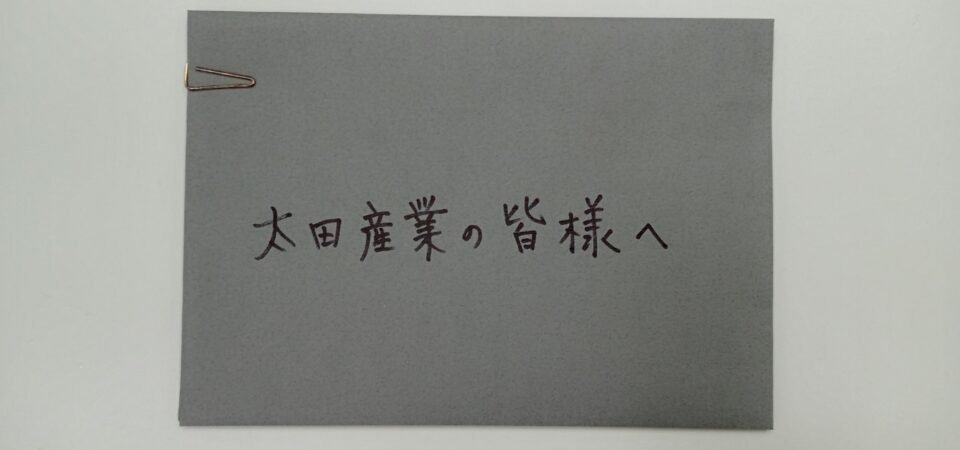 太田産業の皆様へ